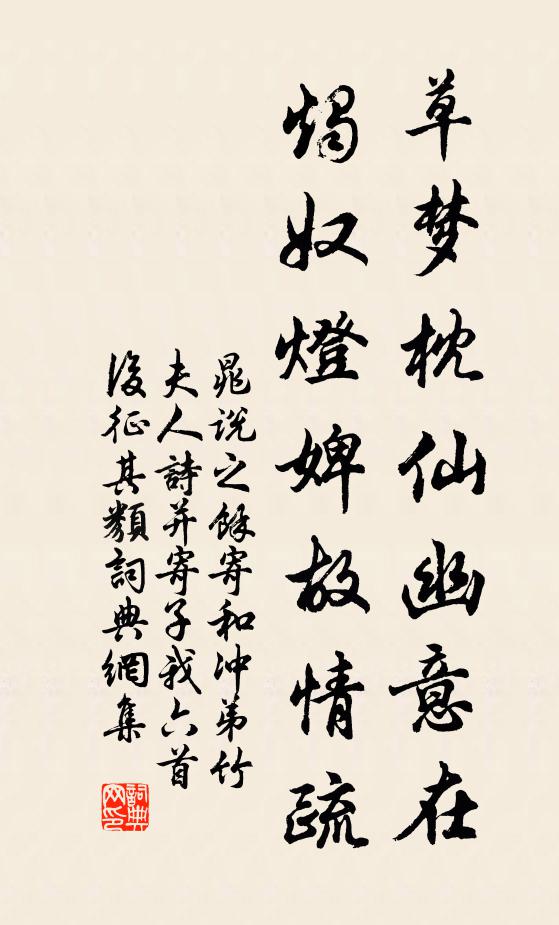 草梦枕仙幽意在
烛奴燈婢故情疏
晁说之餘寄和冲弟竹
夫人詩并寄子我六首
後征其類詞典網集
詞典网印